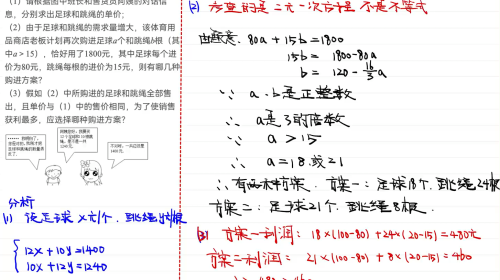 (1) 请根据图中班长和售货员阿姨的对话信
息，分别求出足球和跳绳的单价；
(2) 由于足球和跳绳的需求量增大，该体育用
品商店老板计划再次购进足球a个和跳绳b根（其
中a＞15），恰好用了1800元，其中足球每个进
价为80元，跳绳每根的进价为15元，则有哪几种
购进方案？
(3) 假如（2）中所购进的足球和跳绳全部售
出，且单价与（1）中的售价相同，为了使销售
获利最多，应选择哪种购进方案？
分析
(1) 设足球x元/个，跳绳y元/根
12x+10y=1400
10x+12y=1240
(2) 考查的是二元一次方程 不是不等式
由题意：80a+15b=1800
15b=1800-80a
b=120-16/3a
∵ a、b是正整数
∴ a是3的倍数
∵ a>15
∴ a=18或21
∴有两种方案，方案一：足球18个，跳绳24根
方案二：足球21个，跳绳8根.
(3) 方案一利润：18×(100-80)+24×(20-15)=480元
方案二利润：21×(100-80)+8×(20-15)=460